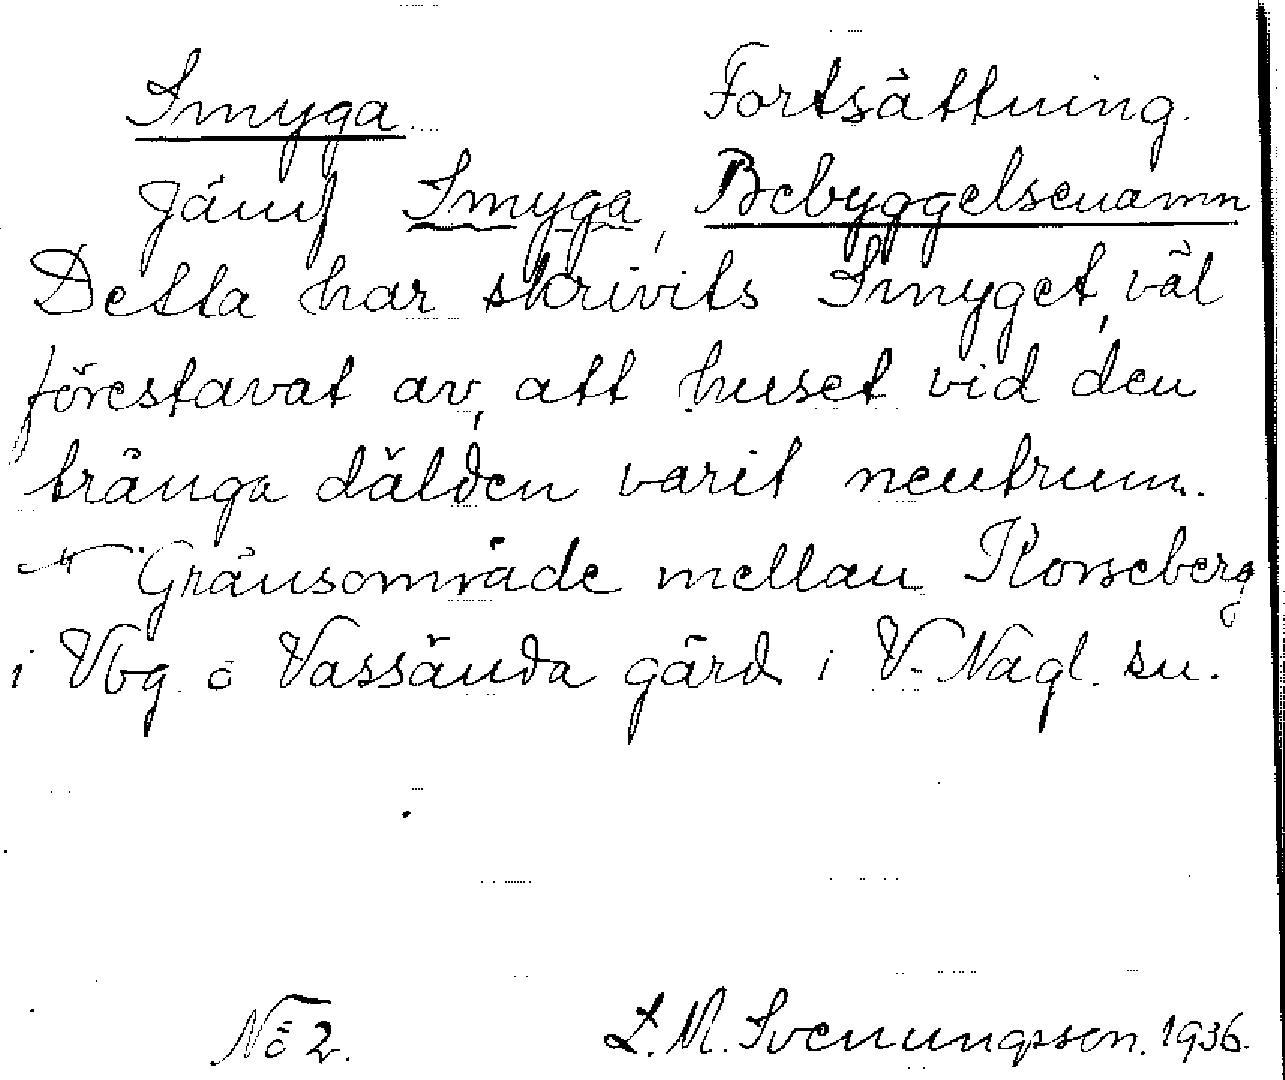 Smyga Fortsättning.
Jämf Smyga, Bebyggelsenamn
Detta har skrivits Smyget, väl
förestavat av, att huset vid den
trånga dälden varit neutrum.
Gränsområde mellan Korseberg
i Vbg o Vassända gärd i V. Nagl. sn.
No 2. L. M. Svenungsson. 1936.